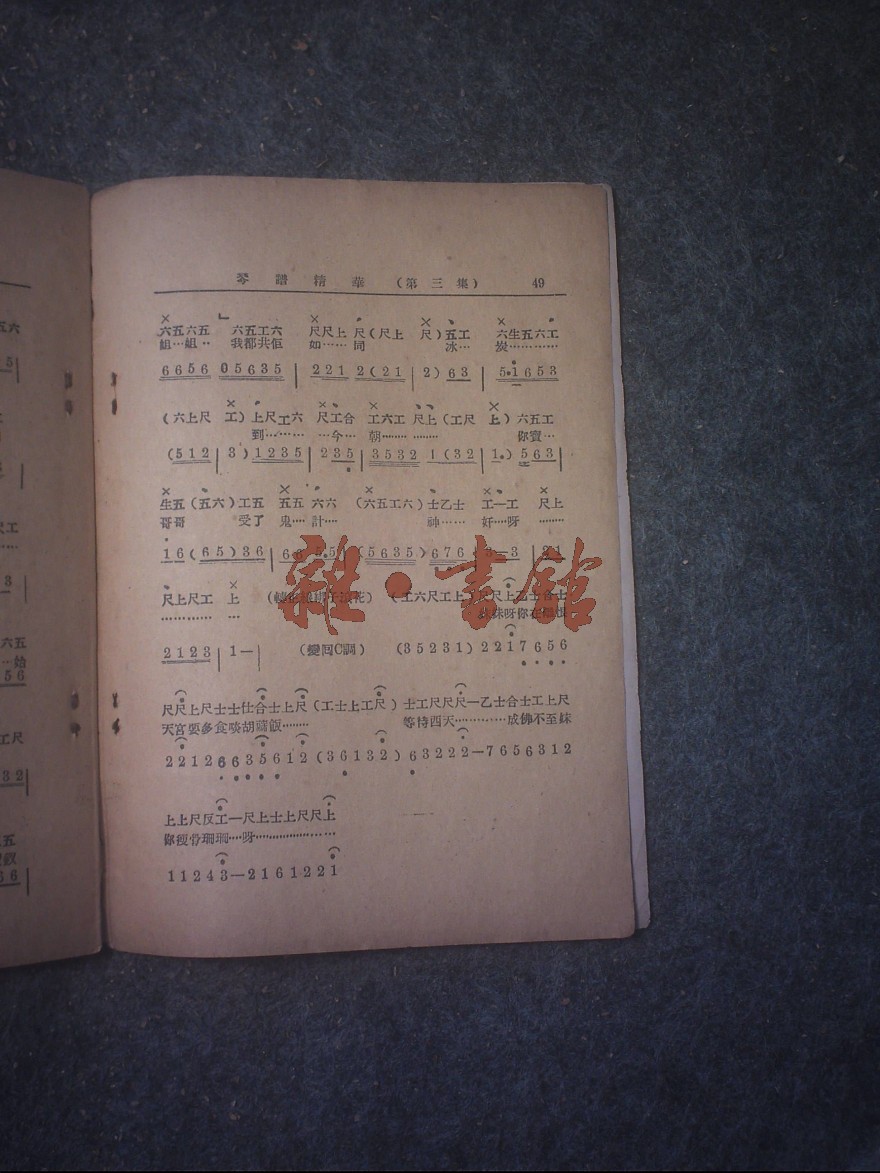 琴譜精華（第三集） 49
六五六五 六五工六 尺尺上 尺（尺上 尺）五工 六生五六工
組…組‥ 我都共佢 如……同 冰… 炭…………
6656 05635 | 221 2(21 | 2) 63 | 5·1653
（六上尺 工）上尺工六 尺工合 工六工 尺上（工尺 上）六五工
到……… …今… 朝…… …… 你寶…
(512 | 3)1235 | 235 | 3532 1(32 | 1·)563 |
生五（五六）工五 五五 六六 （六五工六）士乙士 工—工 尺上
哥哥 受了 鬼… 計… 神…… 好…呀 ……
16(65)36 | 66 5·5 (5635) 676 3—3 | 21
尺上尺工 上 （工六尺工上）尺尺上乙士合士
………… … 妹呀你在
2123 | 1— | （變回C調） (35231) 2217656
尺尺上尺士士仕合士上尺（工士上工尺）士工尺尺尺—乙士合士工上尺
天宮要多食啖胡蔴飯…… 等待西天…………成佛不至妹
22126635612(36132)63222—7656312
上上尺反工—尺上士上尺尺上
你瘦骨珊珊…呀…………………
11243—21612 21
五六
5
工
尺工
3
五六
…始
56
工尺
32
五
66
雜·書館